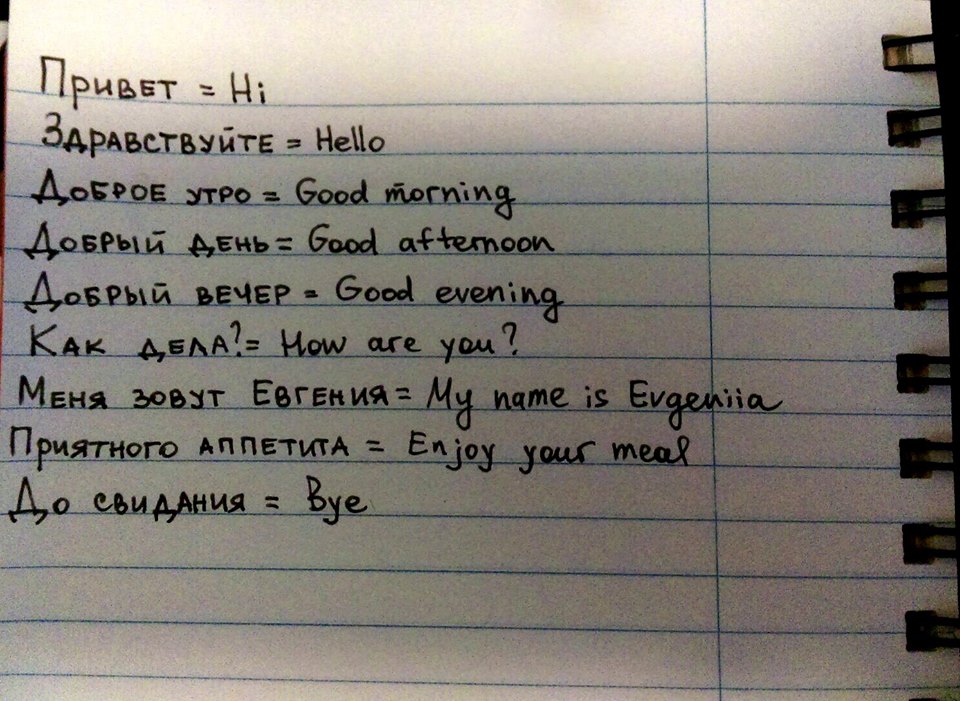 Привет = Hi
Здравствуйте = Hello
Доброе утро = Good morning
Добрый день = Good afternoon
Добрый вечер = Good evening
Как дела? = How are you?
Меня зовут Евгения = My name is Evgeniia
Приятного аппетита = Enjoy your meal
До свидания = Bye